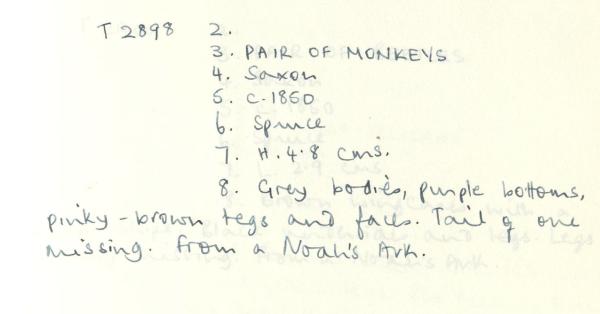 T 2898 2.
3. PAIR OF MONKEYS
4. Saxon
5. C. 1850
6. Spruce
7. H. 4.8 cms.
8. Grey bodies, purple bottoms,
pinky-brown legs and faces. Tail of one
missing. From a Noah's Ark.